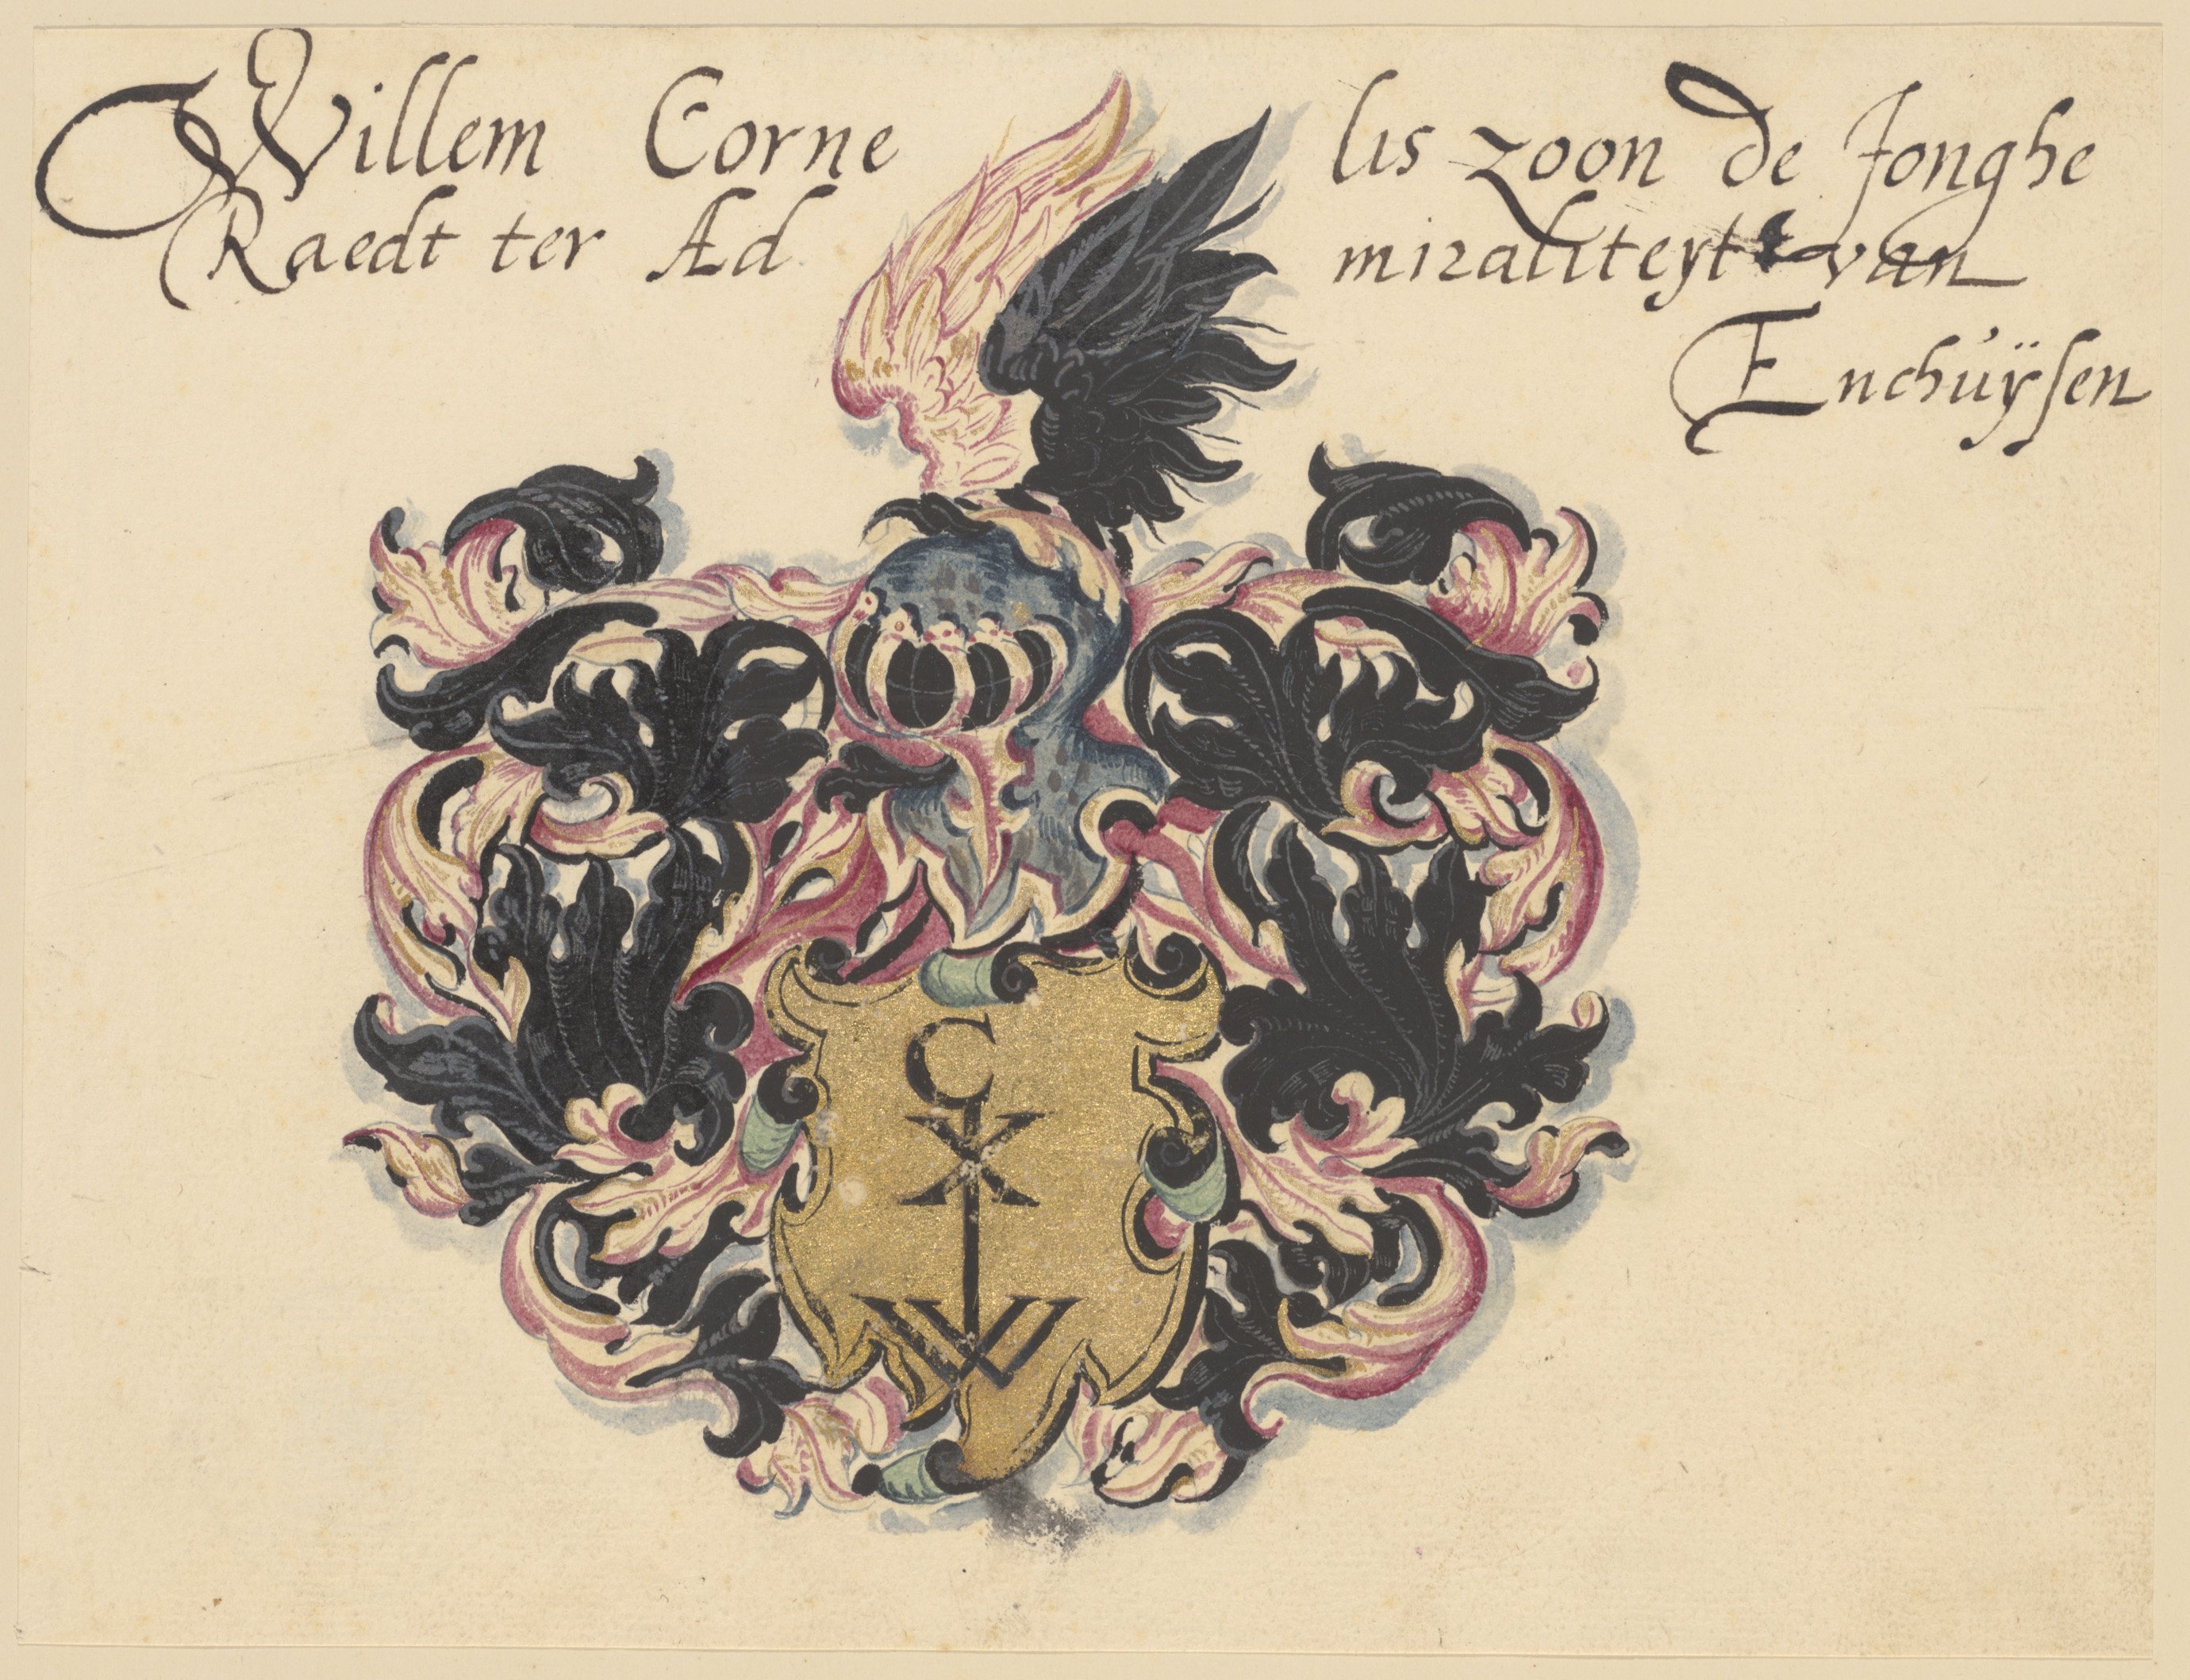 Willem Cornelis zoon de Jonghe
Raedt ter Admiraliteyt van
Enchuÿsen
C
X
W